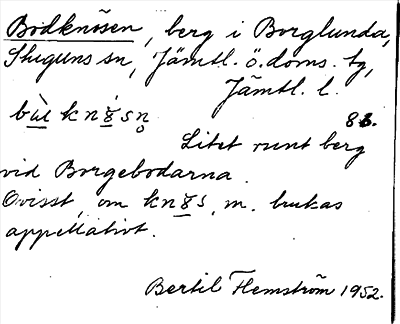 Bodknösen, berg i Borglunda,
Stuguns sn, Jämtl. ö. doms. tg,
Jämtl. l.
86.
Litet runt berg
vid Borgebodarna.
Ovisst om m. brukas
appellativt.
Bertil Flemström 1952.